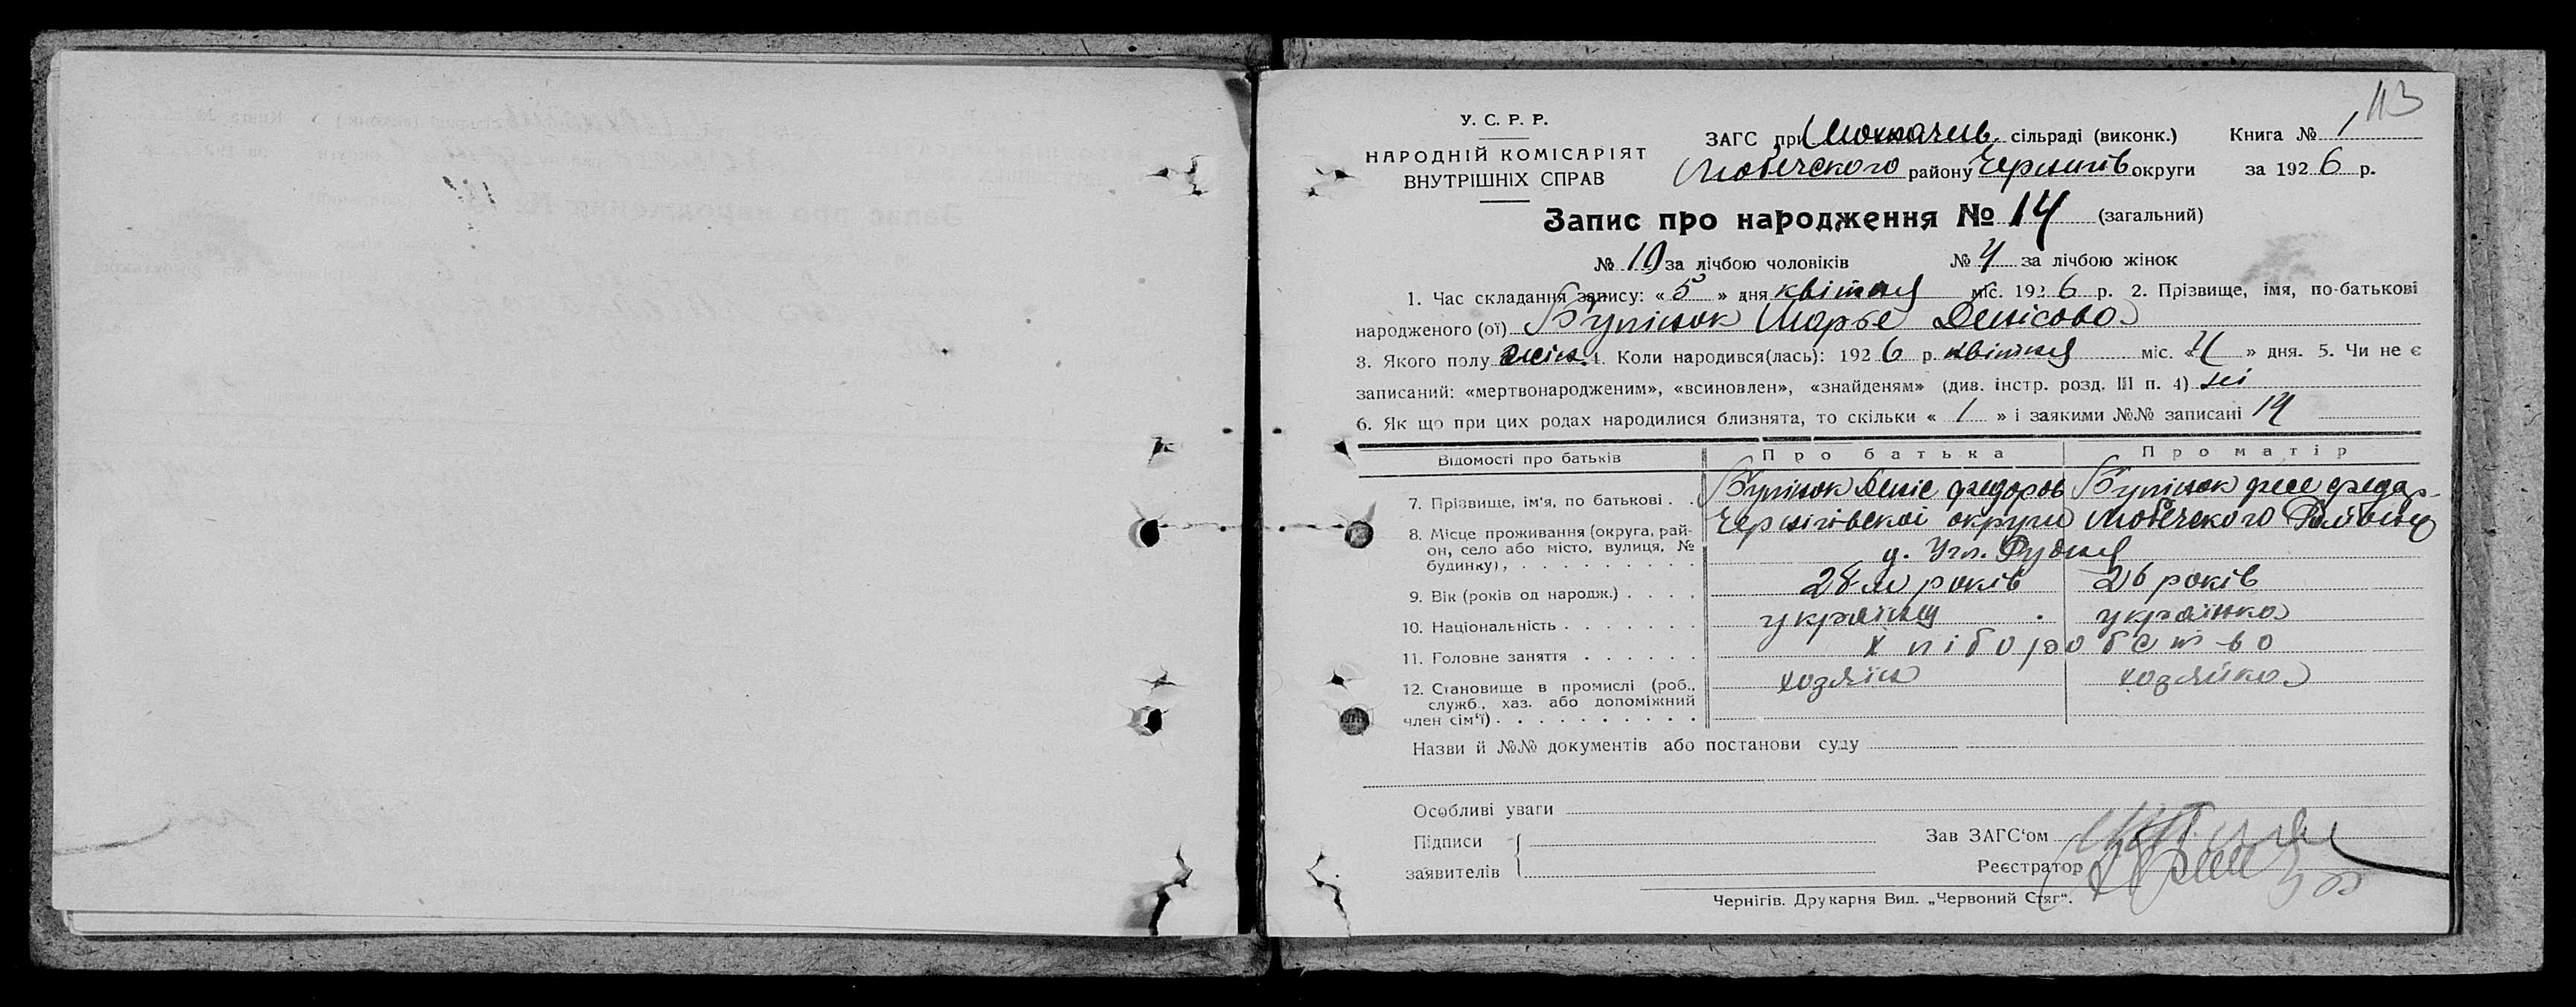 113
У. С. Р. Р.
НАРОДНІЙ КОМІСАРІЯТ
ВНУТРІШНІХ СПРАВ
ЗАГС при сільраді (виконк.) Книга № 1
Любечского району Чернигів округи за 1926 р.
Запис про народження № 14 (загальний)
№ 10 за лічбою чоловіків № 4 за лічбою жінок
1. Час складання запису: « 5 » дня квітня міс. 1926 р. 2. Прізвище, імя, по-батькові
народженого (ої) Марье Денісова
3. Якого полу жін. 4. Коли народився(лась): 1926 р. квітня міс. « 4 » дня. 5. Чи не є
записаний: «мертвонародженим», «всиновлен», «знайденям» (див. інстр. розд. III п. 4) ні
6. Як що при цих родах народилися близнята, то скільки « 1 » і заякими №№ записані 14
Відомості про батьків Про батька Про матір
7. Прізвище, ім'я, по батькові . . Деніс Федоров
8. Місце проживання (округа, район, село або місто, вулиця, № будинку), Чернігівскоі округи Любечского Району
д. Угл. Рудня
9. Вік (років од народж.) . . . . 28-м років 26 років
10. Національність . . . . . . . українц українка
11. Головне заняття . . . . . . хліборобство
12. Становище в промислі (роб., служб., хаз. або допоміжний член сім'ї) . . . . . . . . . . хозяїн хозяйка
Назви й №№ документів або постанови суду
Особливі уваги
Підписи
заявителів
Зав ЗАГС'ом
Реєстратор
Чернігів. Друкарня Вид. „Червоний Стяг".